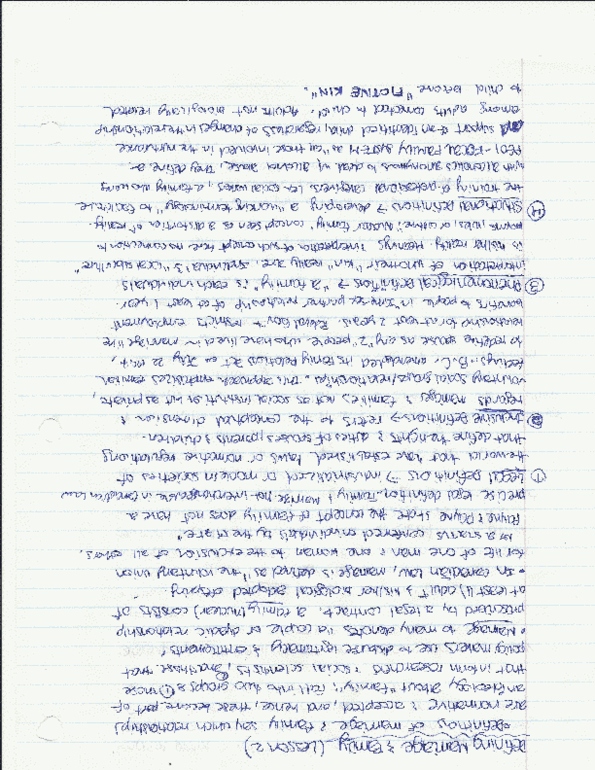 Defining Marriage & Family (Lesson 2)
• Definitions of marriage & family say which relationships
are normative & accepted and, hence, these become part of
an ideology about "family"; fall into two groups: ① those
that inform research & social scientists, ② and those that
policy makers use to distribute legitimacy & entitlements;
• Marriage to many denotes "a couple or dyadic relationship
prescribed by a legal contract. a family (nuclear) consists of
at least (1) adult & his/her biological adopted offspring
• In Canadian law, marriage is defined as "the voluntary union
for life of one man & one woman to the exclusion of all others,
a status conferred on individuals by the state."
Payne & Payne state the concept of family does not have a
precise legal definition. Family & Marriage not interchangeable in Canadian law
① Legal Definitions → industrialized or modern societies of
the world that have established laws or normative regulations
that define the rights & duties of spouses, parents & children.
② Inclusive Definitions → refers to the conceptual dimension &
regards marriages & families not as social institutions but as private,
voluntary social groups/relationships". This approach emphasizes
feelings. B.C. amended its Family Relations Act on July 22,
to redefine spouse as any "2" people who have lived in marriage like
relationship for at least 2 years. Federal Gov't restricts employment
benefits to people in same-sex partner relationship of at least 1 year.
③ Phenomenological Definitions → "a family" is each individuals
interpretation of who their "kin" really are. Individual's "local culture"
is his/her reality. Meanings & interpretations of such concept have no connection to
norms, rules, or culture; "nuclear family" concept seen as a distortion of reality.
④ Situational Definitions → developing a "working terminology" to facilitate
the training of professional caregivers. Ex. social worker; a family who along
with alcoholics anonymous to deal w/ alcohol abuse. They define a
FEMI-FOCAL Family SYSTEM as "all those involved in the nurturance
and support of an identified child, regardless of changes in the relationship
among adults connected to child". Adults not biologically related
to child become "FICTIVE KIN".